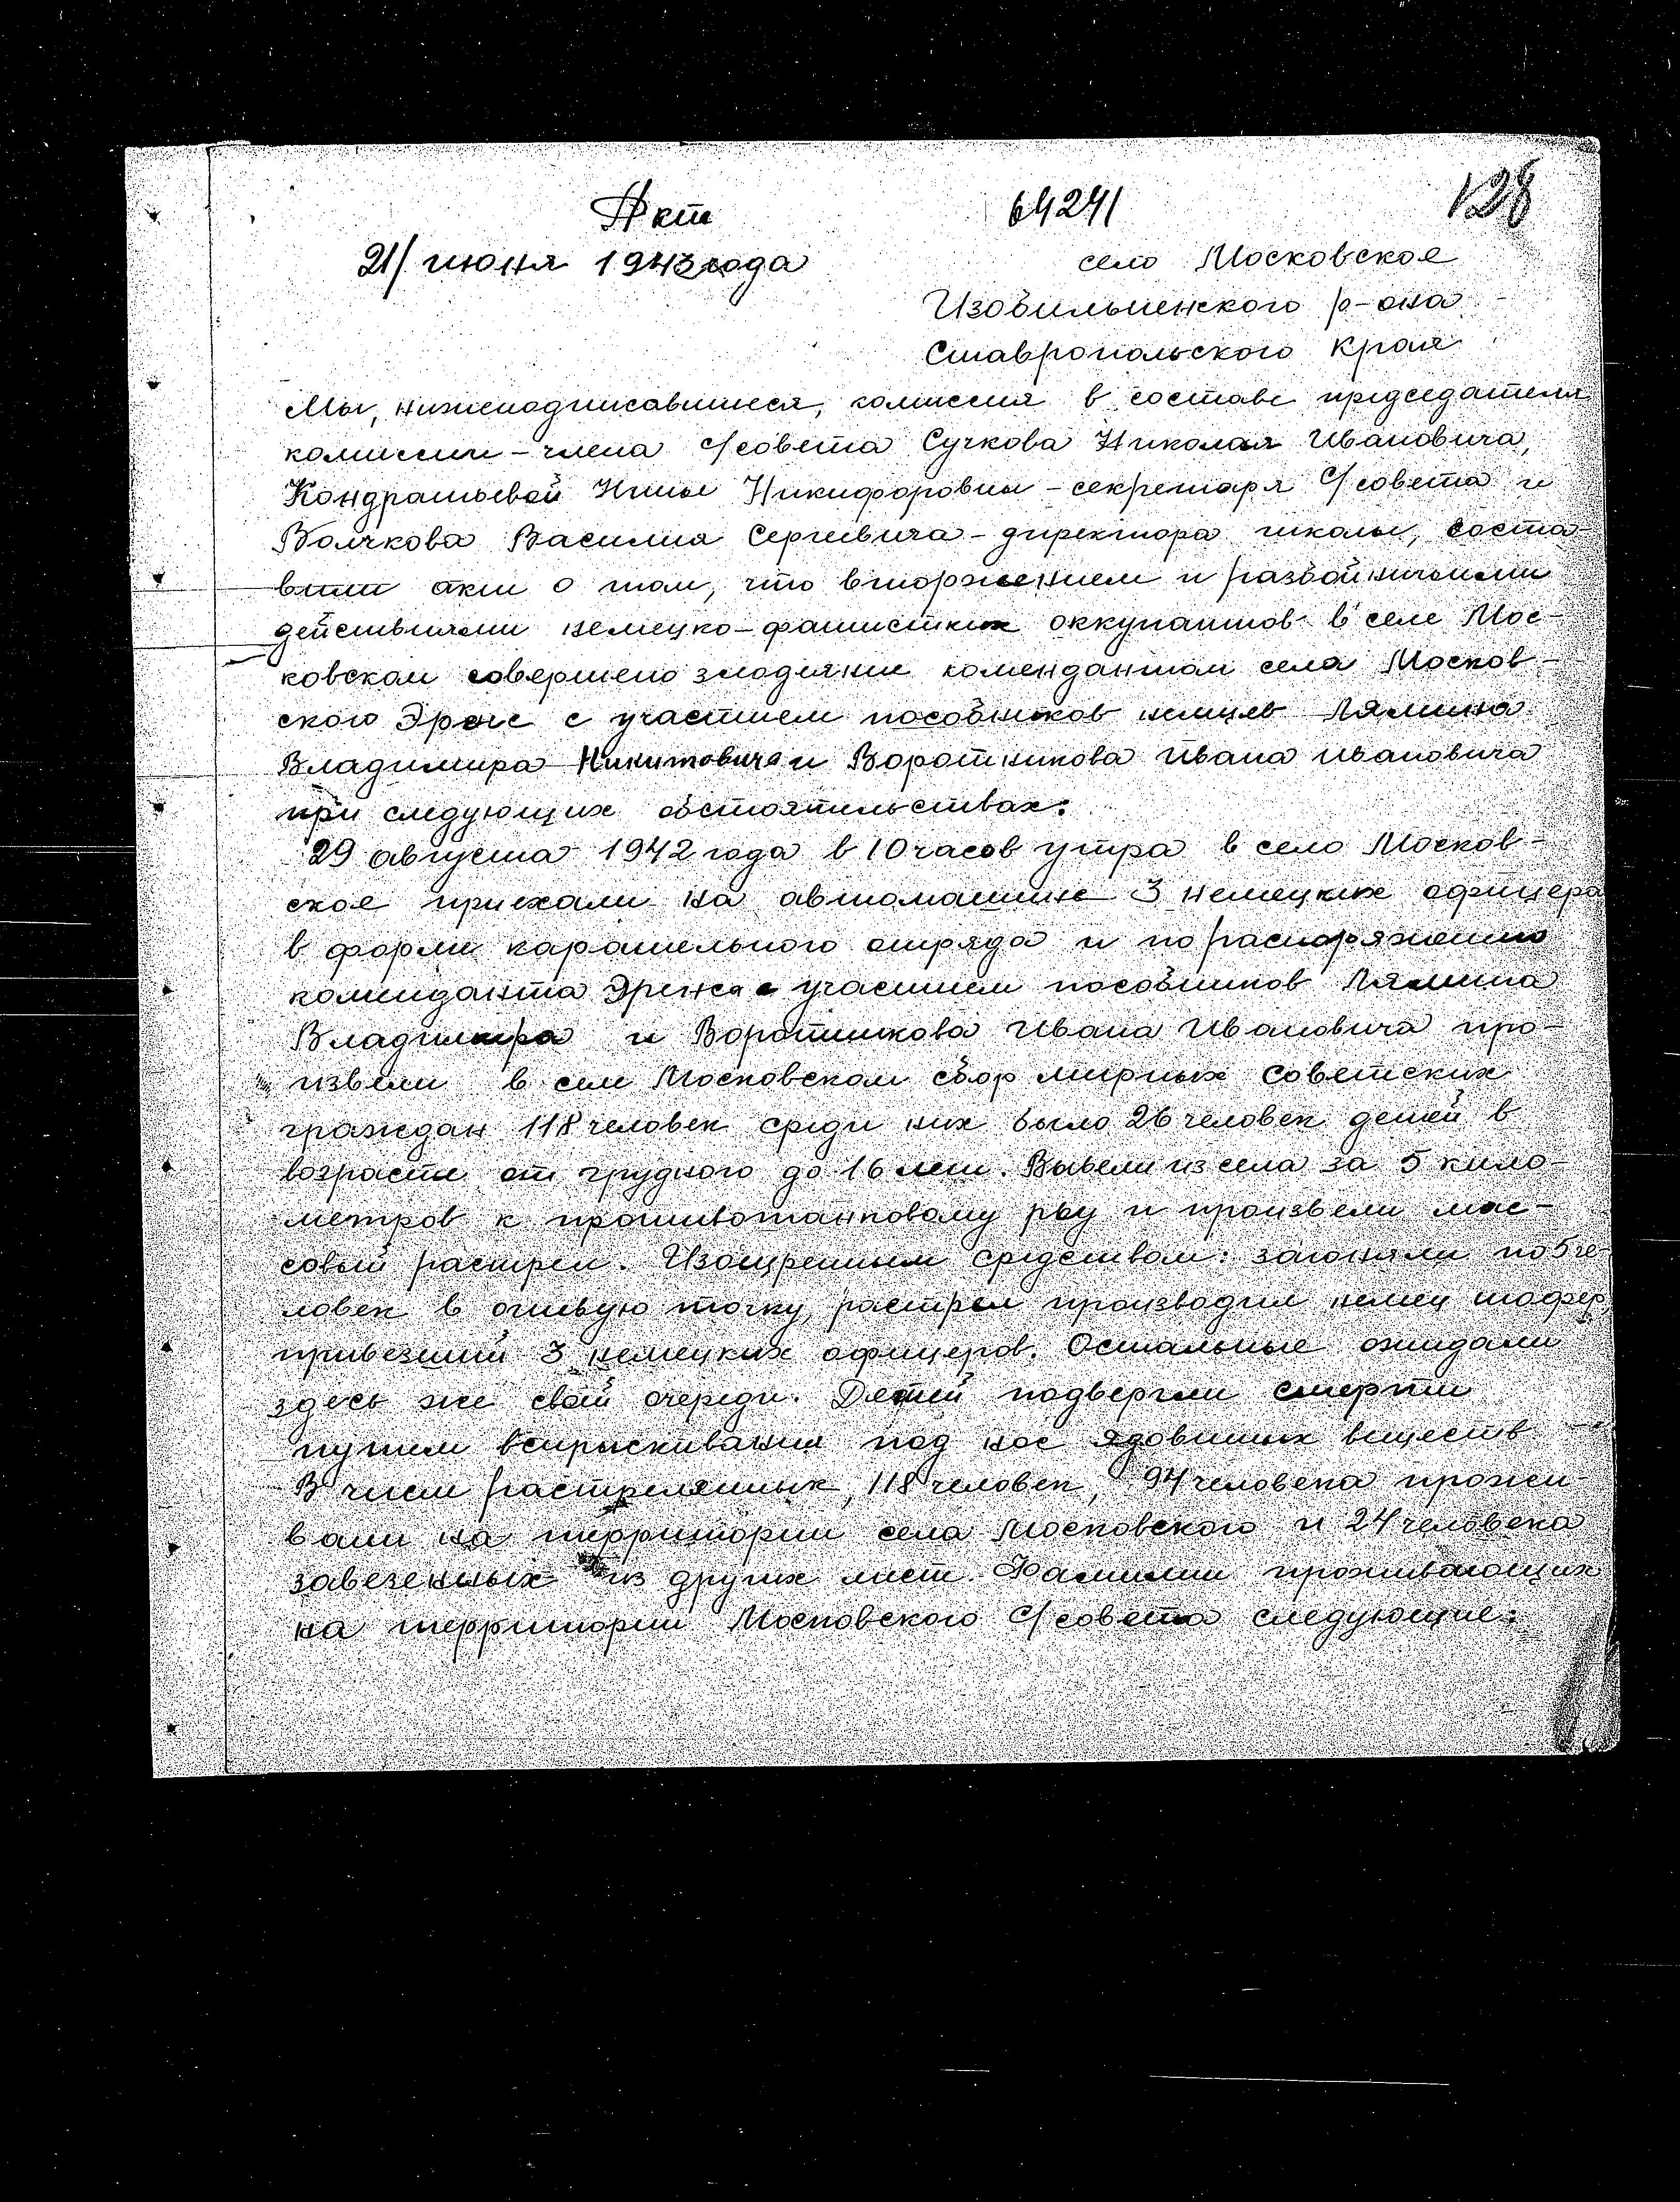 Акт 64241 128
21/ июня 1943 года село Московское
Изобильненского р-она
Ставропольского края
Мы, нижеподписавшиеся, комиссия в составе председателя
комиссии - члена с/совета Сучкова Николая Ивановича,
Кондратьевой Нины Никифоровны - секретаря с/совета и
Волчкова Василия Сергеевича - директора школы, соста-
вили акт о том, что вторжением и разбойничьими
действиями немецко-фашистких оккупантов в селе Мос-
ковском совершено злодеяние комендантом села Москов-
ского Эренс с участием пособников немцев Лямина
Владимира Никитовича и Воротникова Ивана Ивановича
при следующих обстоятельствах:
29 августа 1942 года в 10 часов утра в село Москов-
ское приехали на автомашине 3 немецких офицера
в форме карательного отряда и по распоряжению
коменданта Эренса с участием пособников Лямина
Владимира и Воротникова Ивана Ивановича про-
извели в селе Московском сбор мирных советских
граждан 118 человек среди них было 26 человек детей в
возрасте от грудного до 16 лет. Вывели из села за 5 кило-
метров к противотанковому рву и произвели мас-
совый растрел. Изощренным средством: загоняли по 5 че-
ловек в огневую точку, растрел производил немец шофер,
привезший 3 немецких офицеров. Остальные ожидали
здесь же свой очереди. Детей подвергли смерти
путем вспрыскивания под нос ядовитых веществ
В числе растрелянных, 118 человек, 94 человека прожи-
вали на территории села Московского и 24 человека
завезенных из других мест. Фамилии проживающих
на территории Московского с/совета следующие: